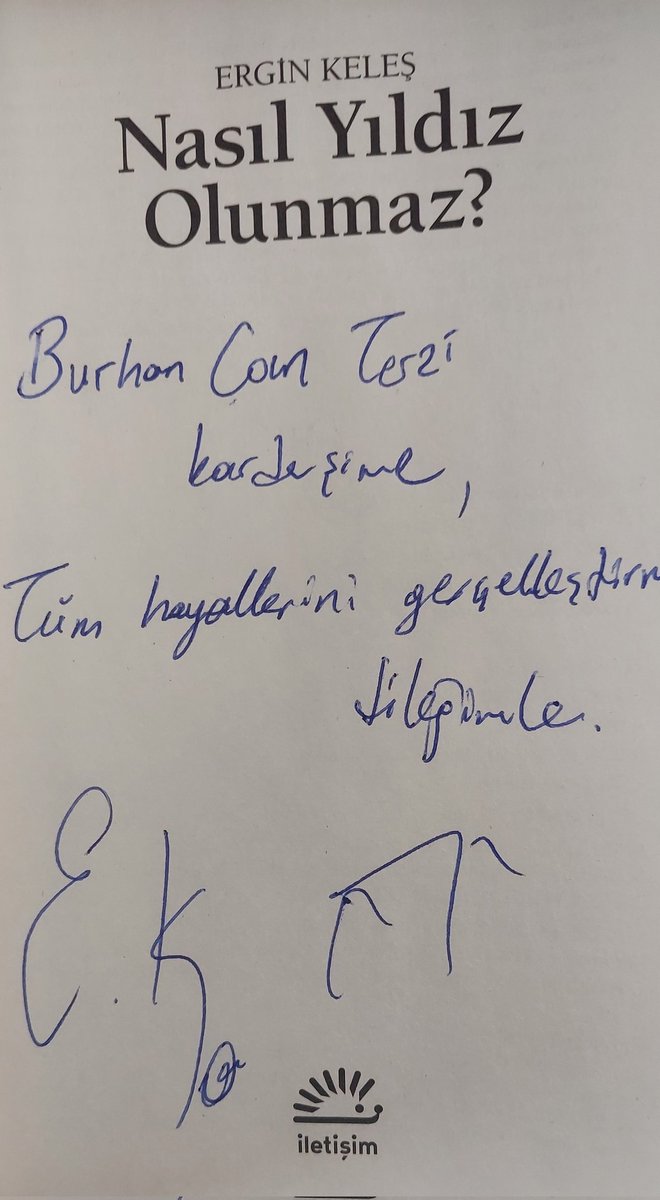 ERGİN KELEŞ
Nasıl Yıldız
Olunmaz?
Burhan Can Terzi
kardeşime,
Tüm hayallerini gerçekleştirm
dileğimle.
E.K
iletişim